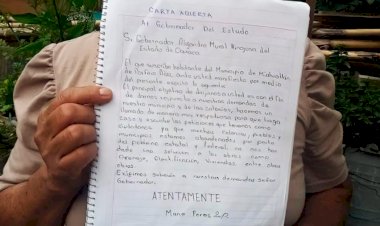 CARTA ABIERTA
Al Gobernador Del Estado
Sr. Gobernador Alejandro Murat Hinojosa del
Estado de Oaxaca.
El que suscribe habitante del Municipio de
de Porfirio Díaz, ante usted manifiesto por medio
del presente escrito lo siguiente
El principal objetivo de dirigirnos a usted es con el fin
de darnos respuesta a nuestras demandas de
nuestro municipio y de las colonias, hacemos un
llamado de manera muy respetuosa para que haga
caso y escuche las peticiones que tenemos como
ciudadanos ya que muchas colonias, pueblos y
municipios estamos abandonados por parte
del gobierno estatal y federal, no nos han
dado una solución a las obras como
Drenaje, Electrificación, Viviendas, entre otras
obras.
Exigimos solución a nuestras demandas Señor
Gobernador.
ATENTAMENTE